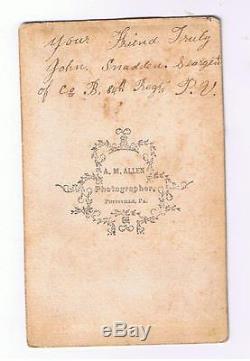 Your Friend Truly
John Snadden Seargen
of Co B. 8th Regt P. V.
A. M. ALLEN
Photographer,
POTTSVILLE, PA.